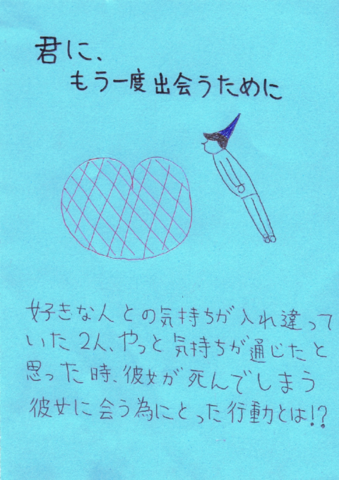 君に、
もう一度出会うために
好きな人との気持ちが入れ違って
いた2人、やっと気持ちが通じたと
思った時、彼女が死んでしまう
彼女に会う為にとった行動とは!?